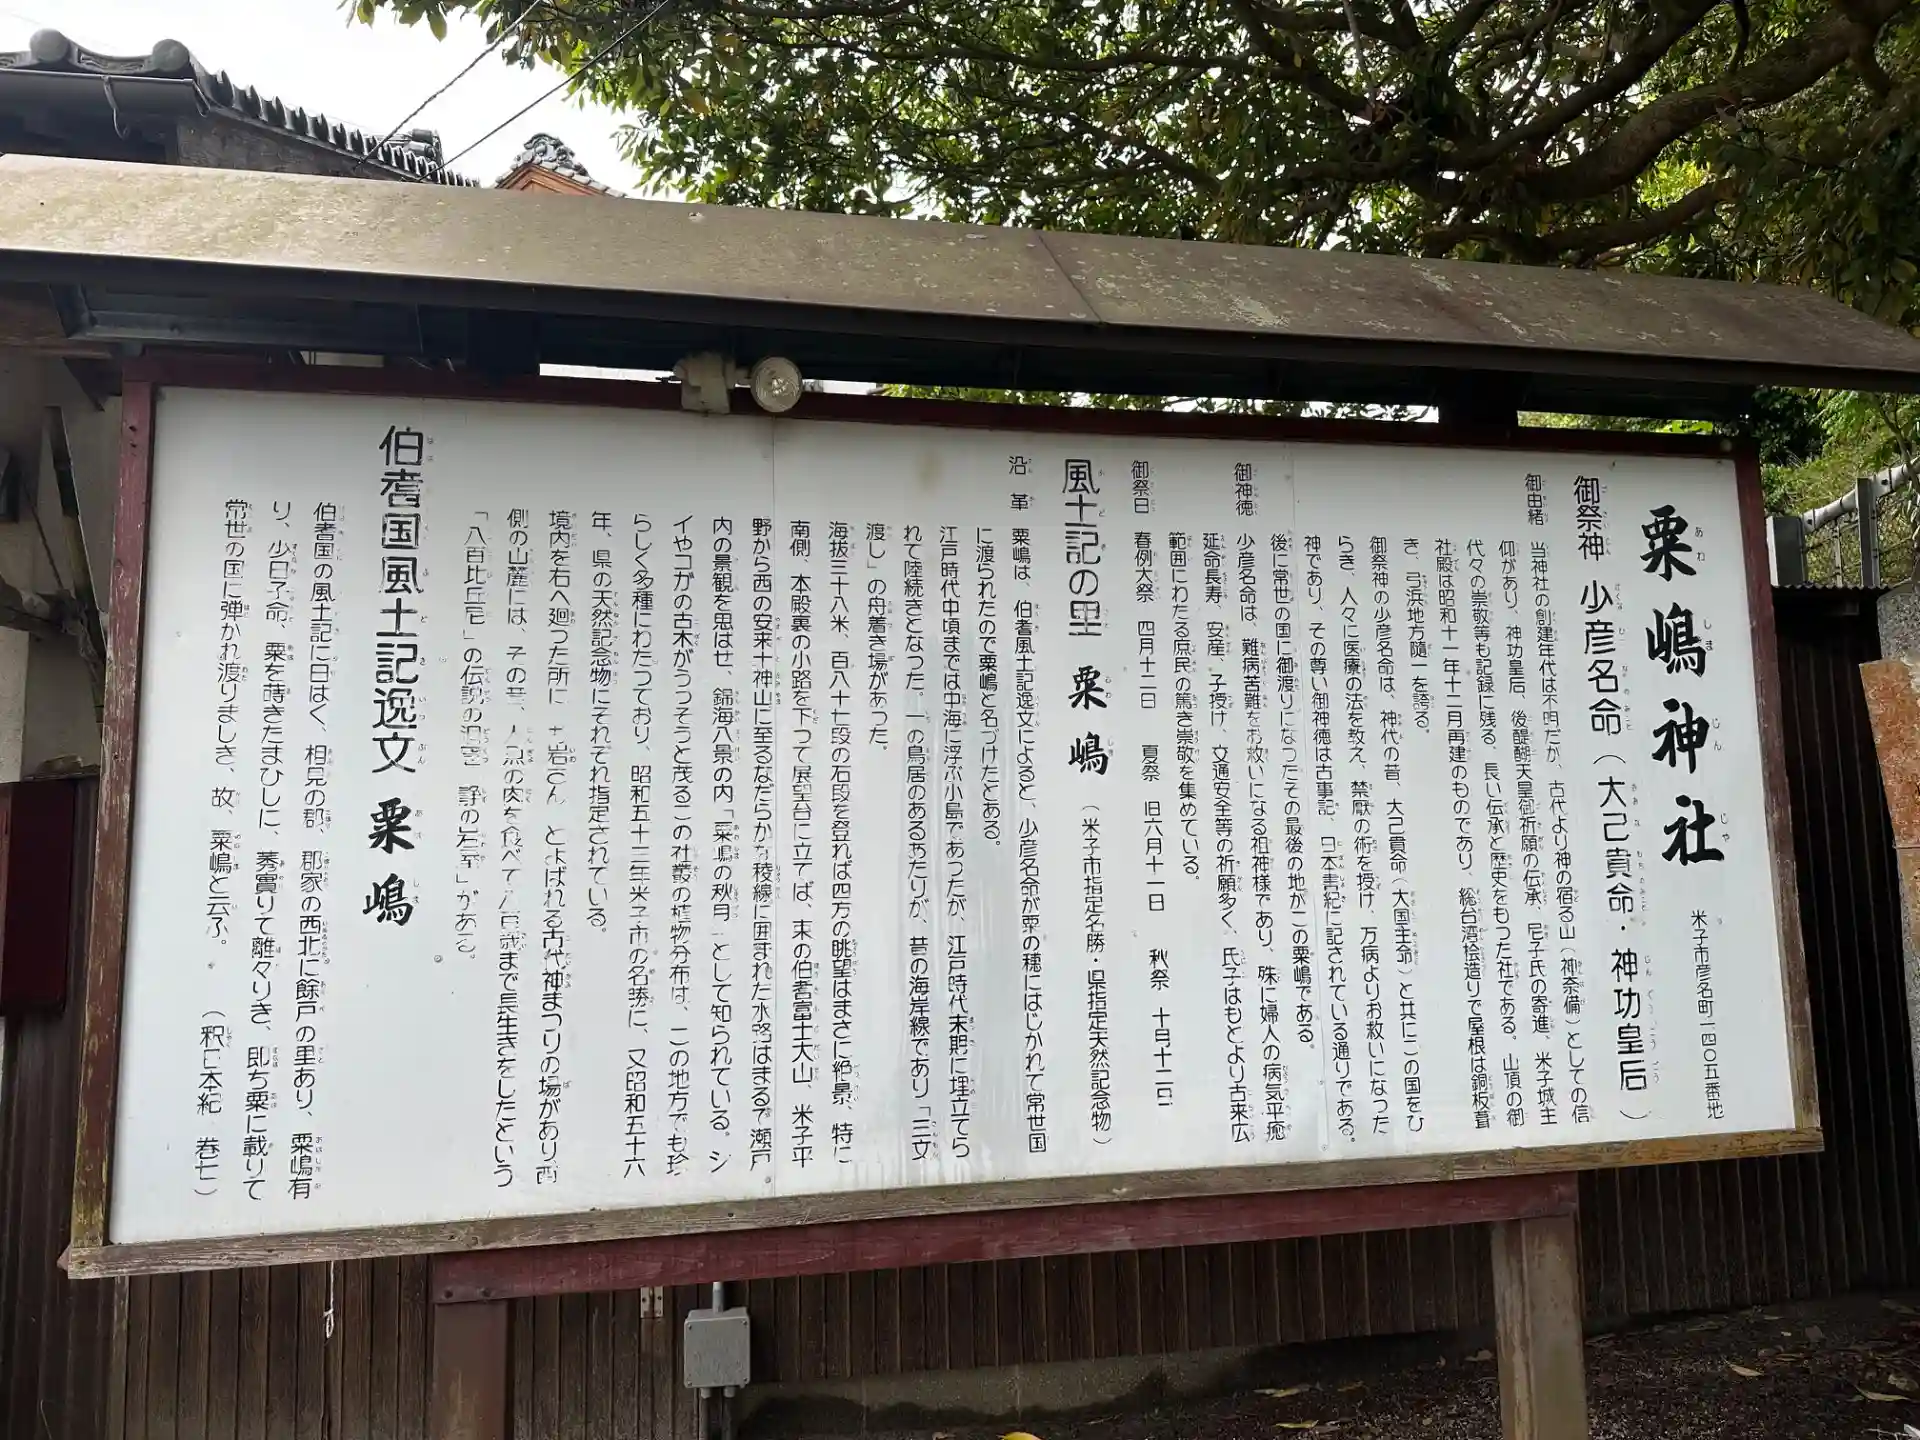 粟嶋神社
米子市彦名町一四〇五番地
御祭神 少彦名命(大己貴命・神功皇后)
御由緒
当神社の創建年代は不明だが、古代より神の宿る山(神奈備)としての信
仰があり、神功皇后、後醍醐天皇御祈願の伝承、尼子氏の寄進、米子城主
代々の崇敬等も記録に残る、長い伝承と歴史をもった社である。山頂の御
社殿は昭和十一年十二月再建のものであり、総台湾桧造りで屋根は銅板葺
き、弓浜地方随一を誇る。
御祭神の少彦名命は、神代の昔、大己貴命(大国主命)と共にこの国をひ
らき、人々に医療の法を教え、禁厭の術を授け、万病よりお救いになった
神であり、その尊い御神徳は古事記、日本書紀に記されている通りである。
後に常世の国に御渡りになったその最後の地がこの粟嶋である。
御神徳
少彦名命は、難病苦難をお救いになる祖神様であり、殊に婦人の病気平癒
延命長寿、安産、子授け、交通安全等の祈願多く、氏子はもとより古来広
範囲にわたる庶民の篤き崇敬を集めている。
御祭日
春例大祭 四月十二日 夏祭 旧六月十一日 秋祭 十月十二日
風土記の里 粟嶋 (米子市指定名勝・県指定天然記念物)
沿革
粟嶋は、伯耆風土記逸文によると、少彦名命が粟の穂にはじかれて常世国
に渡られたので粟嶋と名づけたとある。
江戸時代中頃までは中海に浮ぶ小島であったが、江戸時代末期に埋立てら
れて陸続きとなった。一の鳥居のあるあたりが、昔の海岸線であり「三文
渡し」の舟着き場があった。
海抜三十八米、百八十七段の石段を登れば四方の眺望はまさに絶景、特に
南側、本殿裏の小路を下って展望台に立てば、東の伯耆富士大山、米子平
野から西の安来十神山に至るなだらかな稜線に囲まれた水路はまるで瀬戸
内の景観を思はせ、錦海八景の内「粟嶋の秋月」として知られている。シ
イやコガの古木がうっそうと茂るこの社叢の植物分布は、この地方でも珍
らしく多種にわたっており、昭和五十三年米子市の名勝に、又昭和五十六
年、県の天然記念物にそれぞれ指定されている。
境内を右へ廻った所に お岩さん とよばれる古代神まつりの場があり西
側の山麓には、その昔、人魚の肉を食べて八百歳まで長生きをしたという
「八百比丘尼」の伝説の洞窟 静の岩屋」がある。
伯耆国風土記逸文 粟嶋
伯耆国の風土記に曰はく、相見の郡、郡家の西北に餘戸の里あり、粟嶋有
り、少日子命、粟を蒔きたまひしに、莠實りて離々りき、即ち粟に載りて
常世の国に弾かれ渡りましき、故、粟嶋と云ふ。
(釈日本紀 巻七)